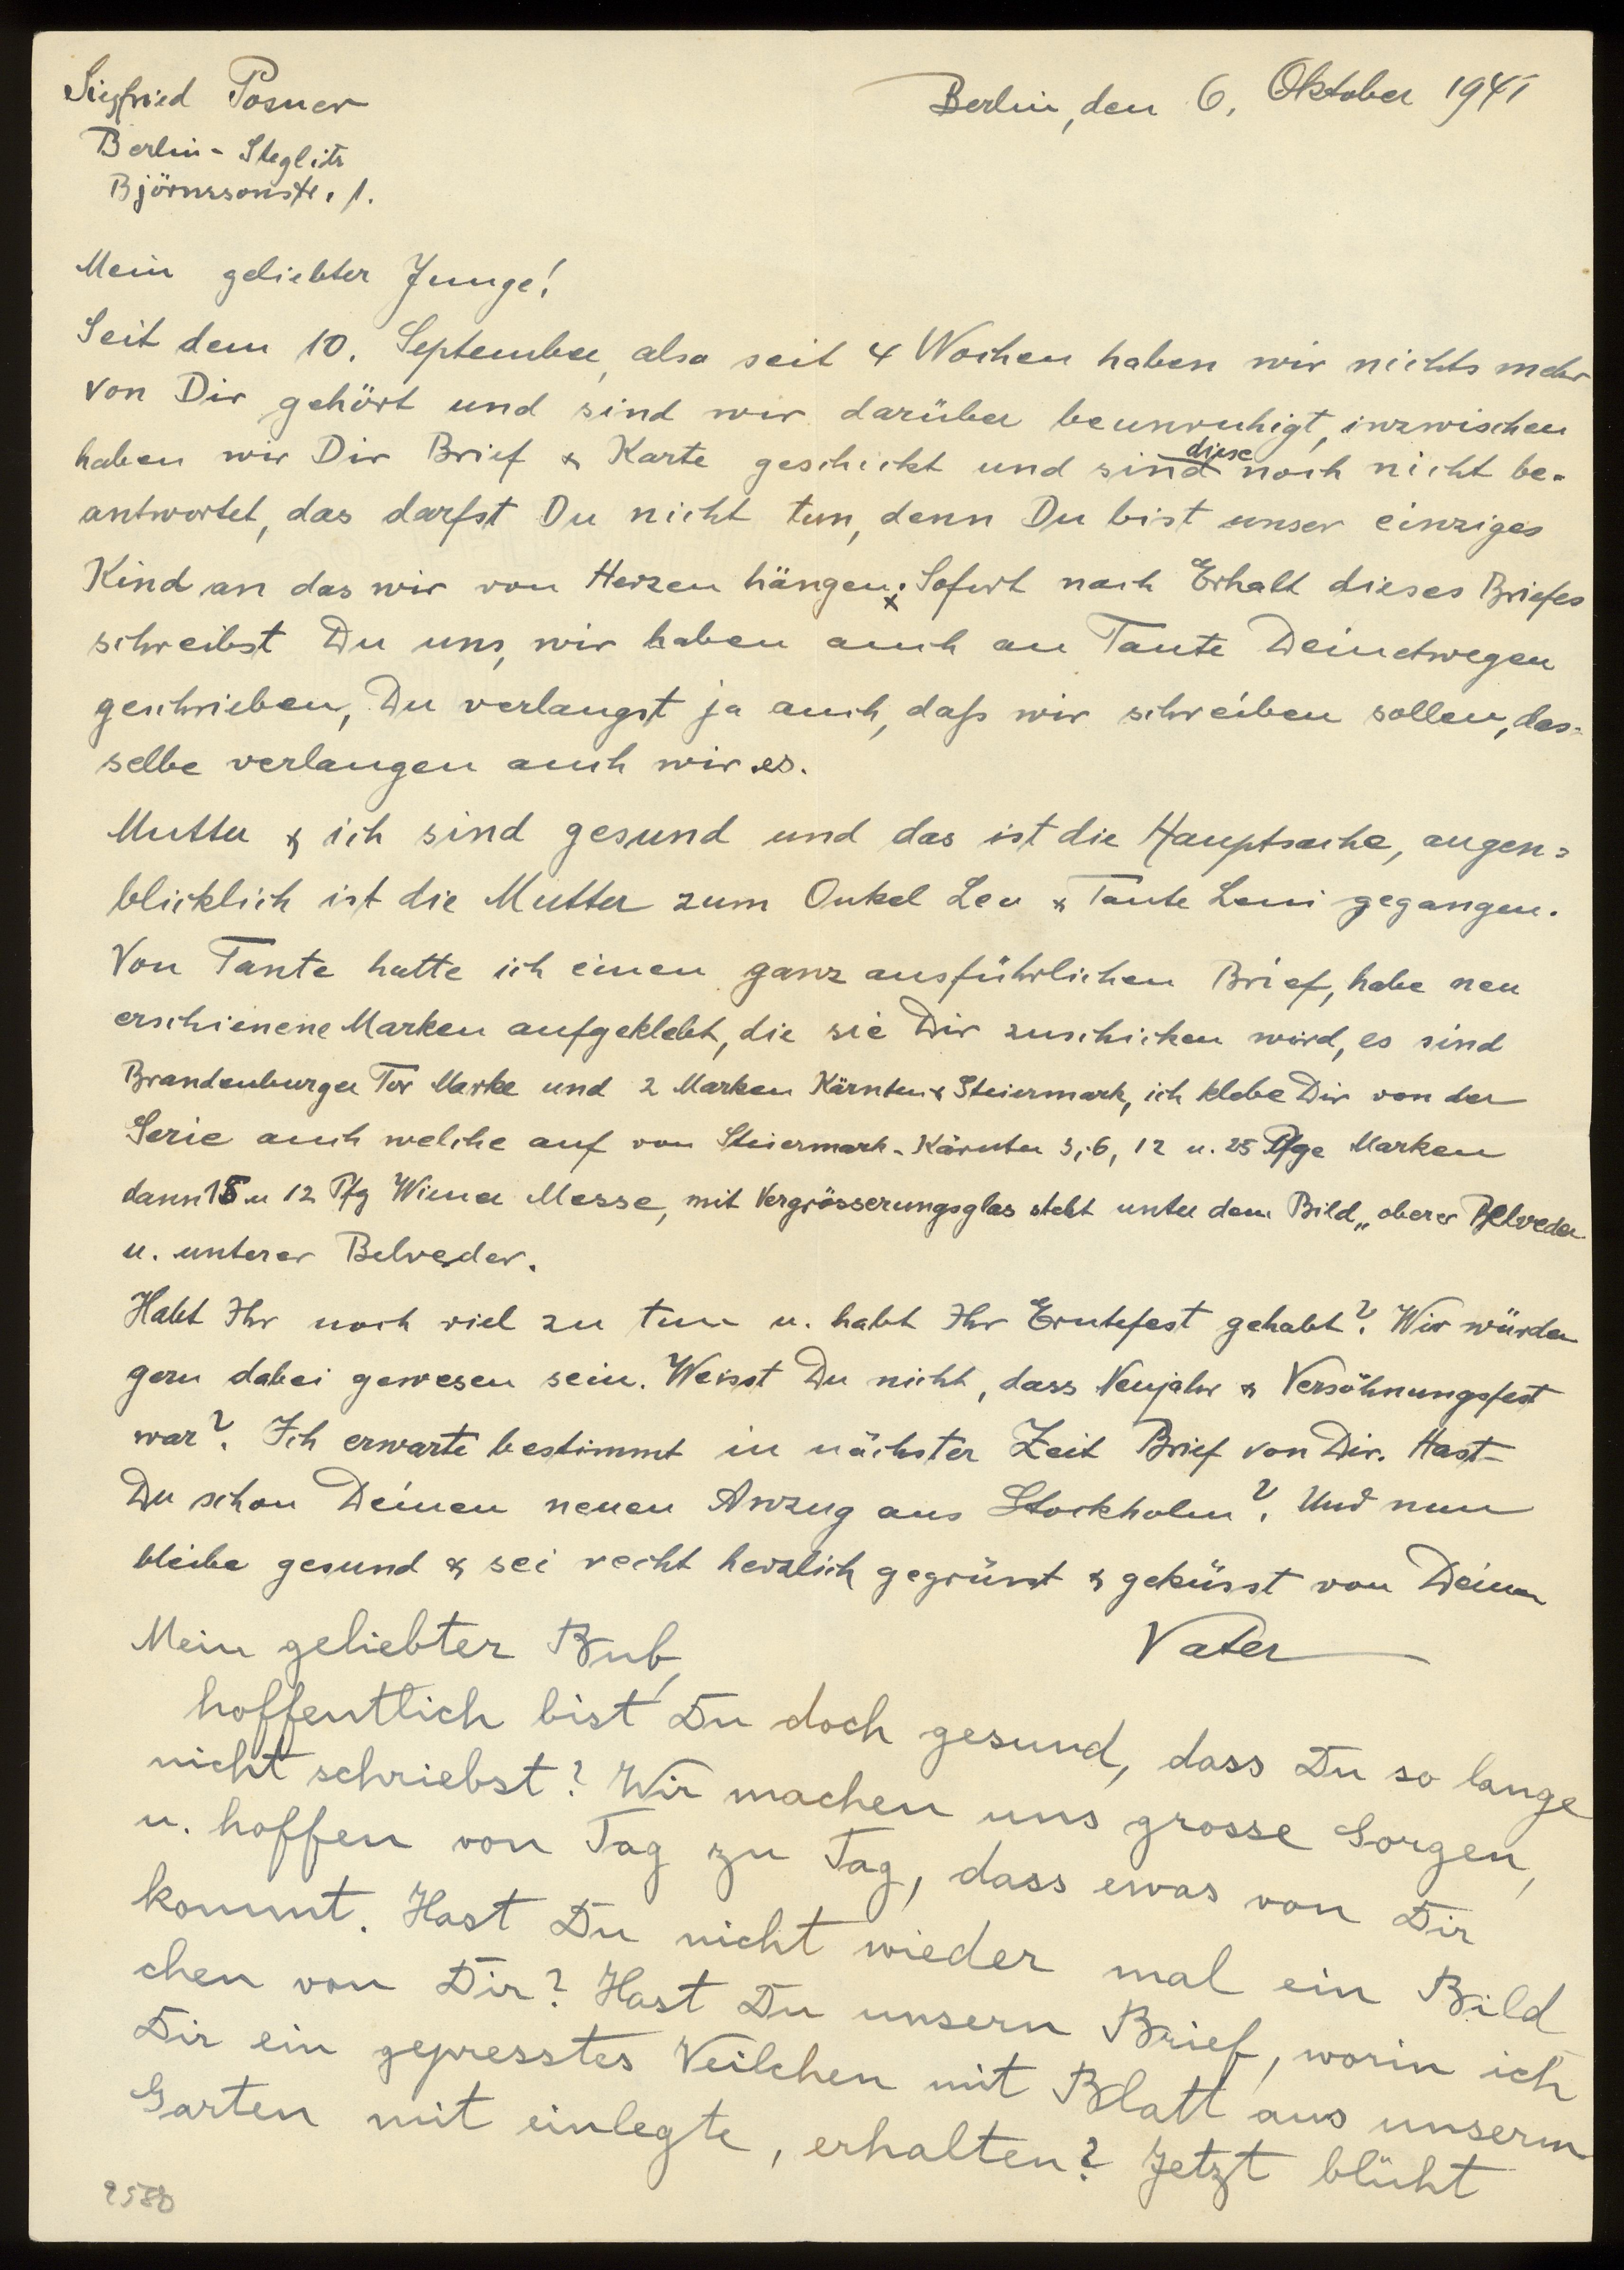 Siegfried Posner
Berlin, den 6. Oktober 1941
Berlin-Steglitz
Björnssonstr. 1.
Mein geliebter Junge!
Seit dem 10. September, also seit 4 Wochen haben wir nichts mehr
von Dir gehört und sind wir darüber beunruhigt, inzwischen
haben wir Dir Brief & Karte geschickt und sind diese noch nicht be-
antwortet, das darfst Du nicht tun, denn Du bist unser einziges
Kind an das wir von Herzen hängen. Sofort nach Erhalt dieses Briefes
schreibst Du uns, wir haben auch an Tante Deinetwegen
geschrieben, Du verlangst ja auch, daß wir schreiben sollen, das-
selbe verlangen auch wir es.
Mutter & ich sind gesund und das ist die Hauptsache, augen-
blicklich ist die Mutter zum Onkel Leo & Tante Leni gegangen.
Von Tante hatte ich einen ganz ausführlichen Brief, habe neu
erschienene Marken aufgeklebt, die sie Dir zuschicken wird, es sind
Brandenburger Tor Marke und 2 Marken Kärnten & Steiermark, ich klebe Dir von der
Serie auch welche auf von Steiermark-Kärnten 3, 6, 12 u. 25 Pfge Marken
dann 15 u 12 Pfg Wiener Messe, mit Vergrösserungsglas steht unter dem Bild „oberer Belveder
u. unterer Belveder.
Habt Ihr noch viel zu tun u. habt Ihr Erntefest gehabt? Wir würden
gern dabei gewesen sein. Weisst Du nicht, dass Neujahr & Versöhnungsfest
war? Ich erwarte bestimmt in nächster Zeit Brief von Dir. Hast
Du schon Deinen neuen Anzug aus Stockholm? Und nun
bleibe gesund & sei recht herzlich gegrüsst & geküsst von Deinem
Vater
Mein geliebter Bub,
hoffentlich bist Du doch gesund, dass Du so lange
nicht schriebst? Wir machen uns grosse Sorgen,
u. hoffen von Tag zu Tag, dass ewas von Dir
kommt. Hast Du nicht wieder mal ein Bild
chen von Dir? Hast Du unsern Brief, worin ich
Dir ein gepresstes Veilchen mit Blatt aus unserm
Garten mit einlegte, erhalten? Jetzt blüht
9580